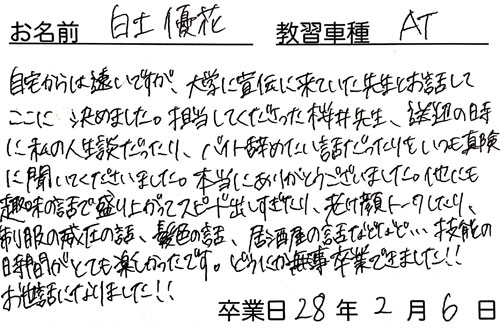 お名前 白土優花 教習車種 AT
自宅からは遠いですが、大学に宣伝に来ていた先生とお話して
ここに決めました。担当してくださった桜井先生、送迎の時
に私の人生談だったり、バイト辞めたい話だったりをいつも真険
に聞いてくださいました。本当にありがとうございました。他にも
趣味の話で盛り上がってスピード出しすぎたり、老け顔トークしたり、
制服の威圧の話、髪色の話、居酒屋の話などなど…技能の
時間がとても楽しかったです。どうにか無事卒業できました!!
お世話になりました!!
卒業日 28年 2月 6日